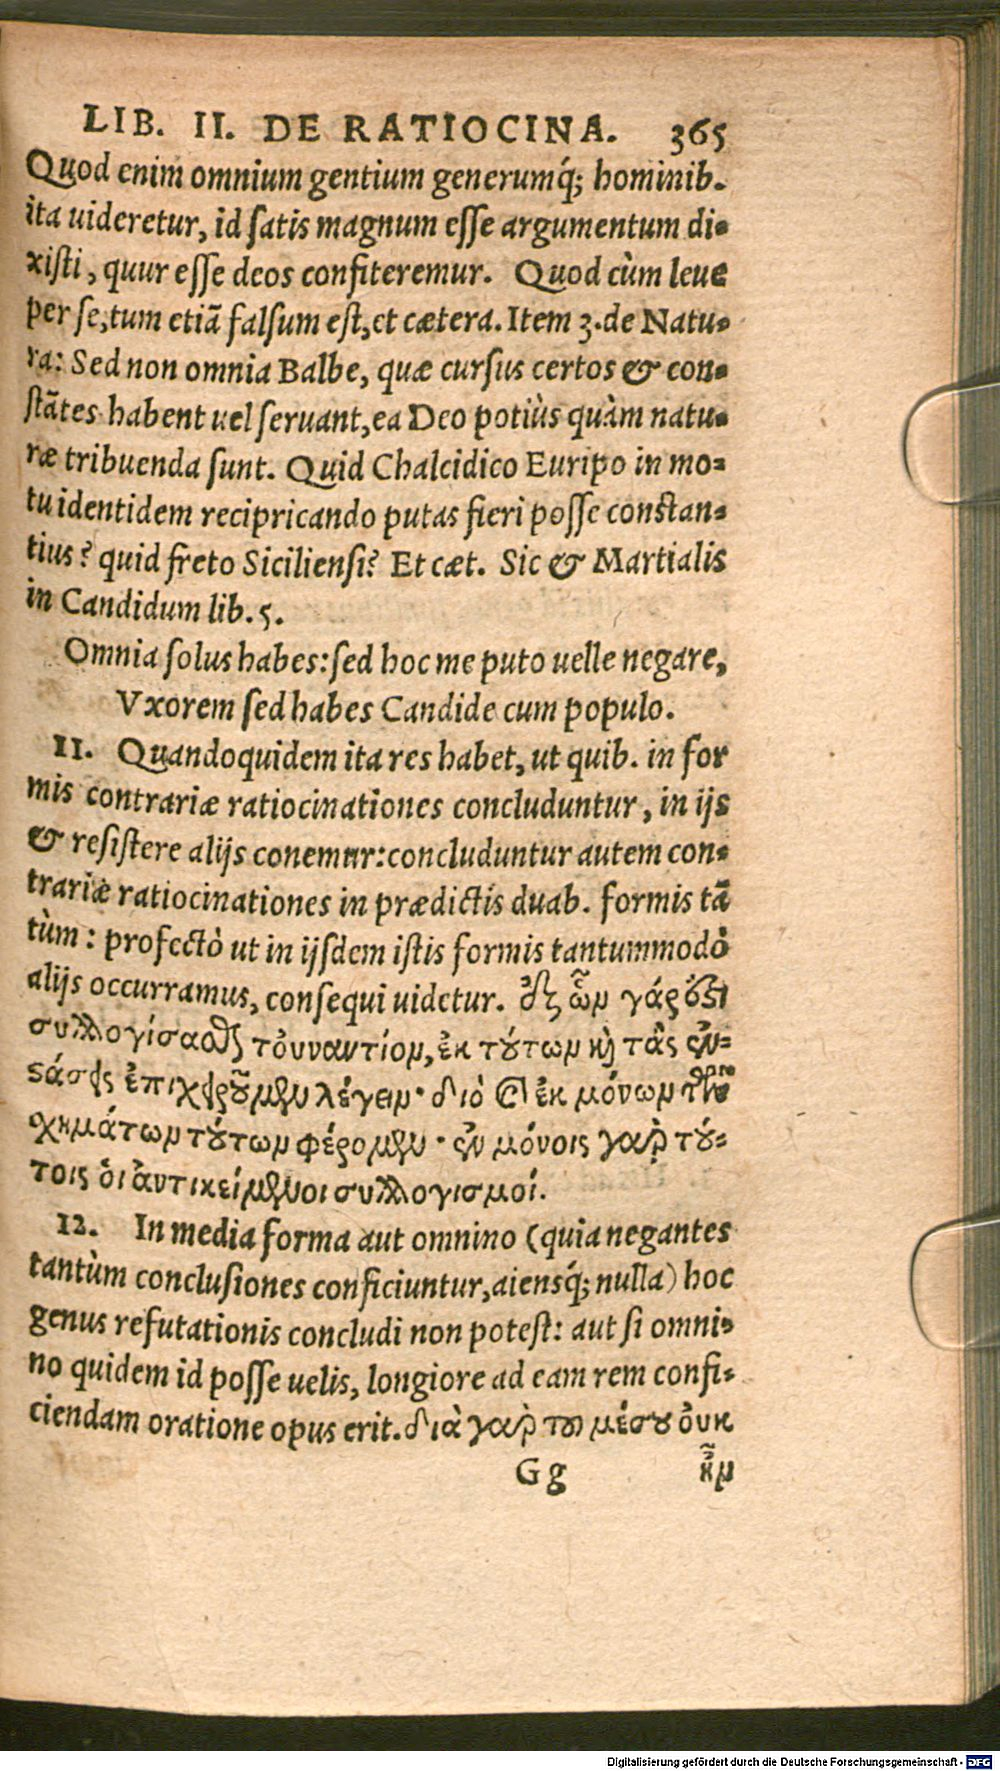 LIB. II. DE RATIOCINA. 365
Quod enim omnium gentium generumq́; hominib.
ita uideretur, id ſatis magnum eſſe argumentum di-
xiſti, quur eſſe deos confiteremur. Quod cùm leue
per ſe, tum etiã falſum eſt, et cætera. Item 3. de Natu-
ra: Sed non omnia Balbe, quæ curſus certos & con-
ſtãtes habent uel ſeruant, ea Deo potiùs quàm natu-
ræ tribuenda ſunt. Quid Chalcidico Euripo in mo-
tu identidem recipricando putas fieri poſſe conſtan-
tius? quid freto Sicilienſi? Et cæt. Sic & Martialis
in Candidum lib. 5.
Omnia ſolus habes: ſed hoc me puto uelle negare,
Vxorem ſed habes Candide cum populo.
11. Quandoquidem ita res habet, ut quib. in for
mis contrariæ ratiocinationes concluduntur, in ijs
& reſiſtere alijs conemur: concluduntur autem con-
trariæ ratiocinationes in prædictis duab. formis tã
tùm: profectò ut in ijſdem iſtis formis tantummodò
alijs occurramus, conſequi uidetur. ἐξ ὧν γάρ ὅξι
συλλογίσαϑαι τοὐναντίον, ἐκ τούτων καὶ τὰς ἐν-
ϛάσεις ἐπιχειροῦμεν λέγειν· διὸ καὶ ἐκ μόνων τῶν
σχημάτων τούτων φέρομεν· ἐν μόνοις γαὸ τού-
τοις ὁι ἀντικείμενοι συλλογισμοί.
12. In media forma aut omnino (quia negantes
tantùm concluſiones conficiuntur, aiensq́; nulla) hoc
genus refutationis concludi non poteſt: aut ſi omni-
no quidem id poſſe uelis, longiore ad eam rem confi-
ciendam oratione opus erit. διὰ γαὸ του μέσου ὀυκ
Gg ἦν
Digitalisierung gefördert durch die Deutsche Forschungsgemeinschaft - DFG